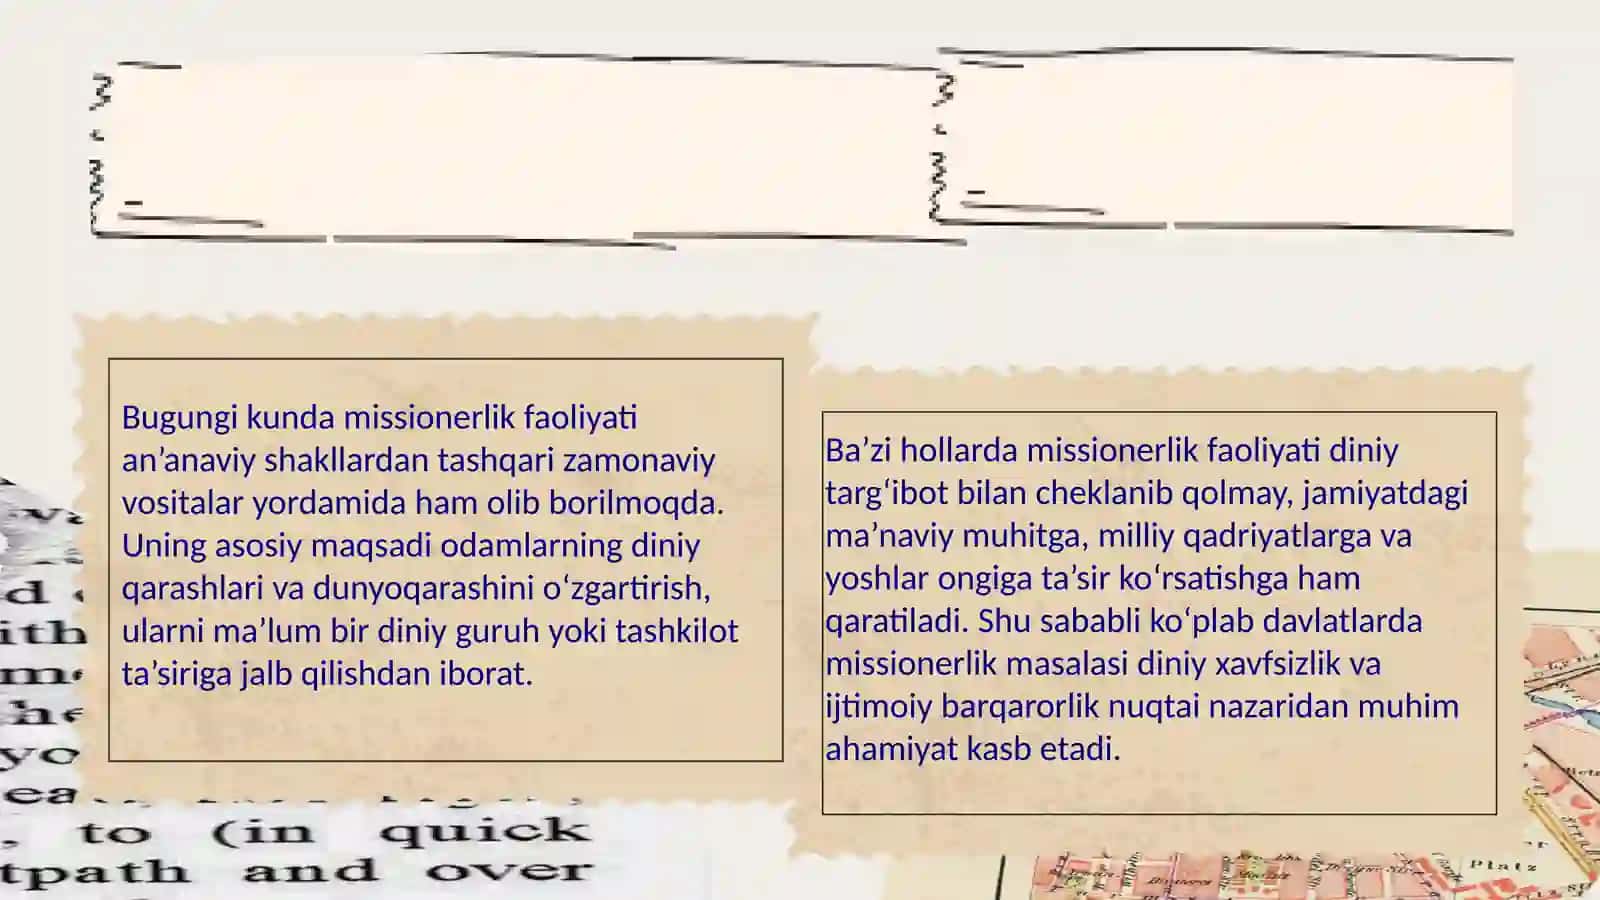 Bugungi kunda missionerlik faoliyati
an’anaviy shakllardan tashqari zamonaviy
vositalar yordamida ham olib borilmoqda.
Uning asosiy maqsadi odamlarning diniy
qarashlari va dunyoqarashini o‘zgartirish,
ularni ma’lum bir diniy guruh yoki tashkilot
ta’siriga jalb qilishdan iborat.
Ba’zi hollarda missionerlik faoliyati diniy
targ‘ibot bilan cheklanib qolmay, jamiyatdagi
ma’naviy muhitga, milliy qadriyatlarga va
yoshlar ongiga ta’sir ko‘rsatishga ham
qaratiladi. Shu sababli ko‘plab davlatlarda
missionerlik masalasi diniy xavfsizlik va
ijtimoiy barqarorlik nuqtai nazaridan muhim
ahamiyat kasb etadi.
, to (in quick
tpath and over
Platz